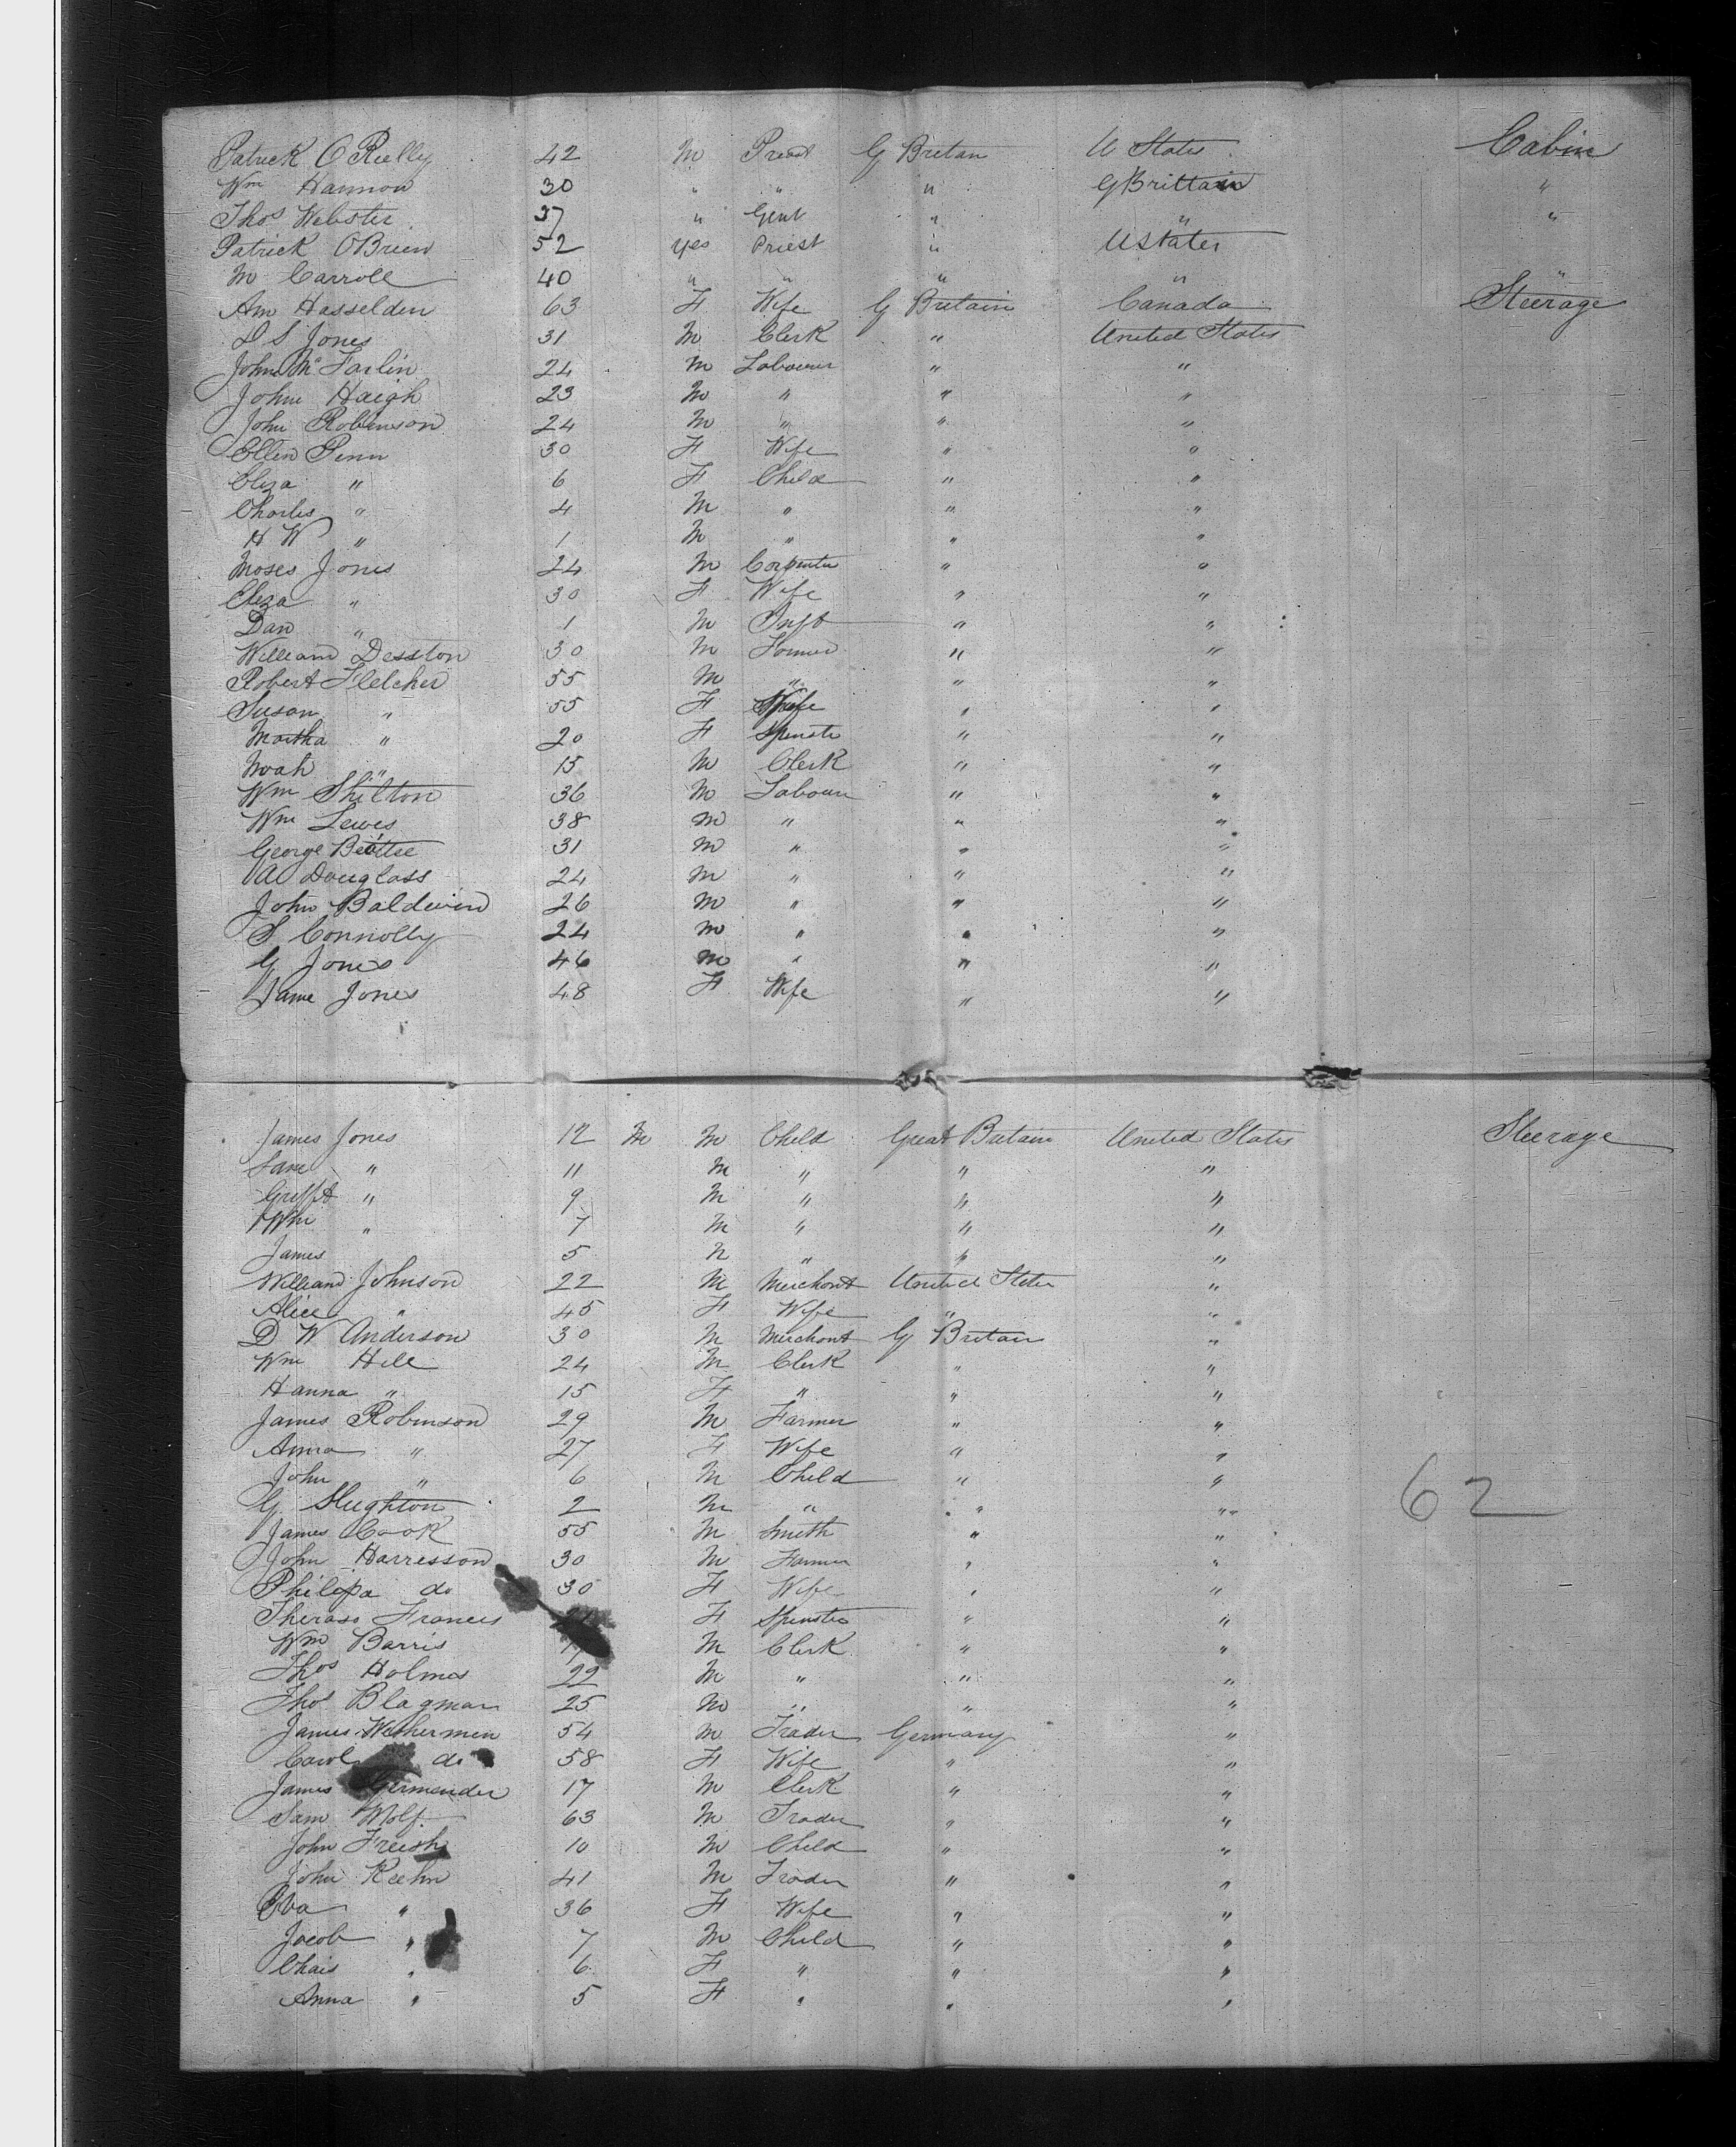 Patrick O Rielly 42 M Priest G Bretan U States Cabin
Wm Hannon 30 " " " G Brittain "
Thos Webster 37 " Gent " " "
Patrick OBrien 52 yes Priest " U States
M Carroll 40 " " " " "
Am Hasselden 63 F Wife G Britain Canada Steerage
D S Jones 31 M Clerk " United States
John Mc Farlin 24 M Labourer " "
John Haigh 23 M " " "
John Robinson 24 M " " "
Ellen Penn 30 F Wife " "
Eliza " 6 F Child " "
Charles " 4 M " " "
H W " 1 M " " "
Moses Jones 24 M Carpenter " "
Eliza " 30 F Wife " "
Dan " 1 M Inft " "
William Desston 30 M Farmer " "
Robert Fletcher 55 M " " "
Susan " 55 F Wife " "
Martha " 20 F Spinster " "
Noah " 15 M Clerk " "
Wm Shilton 36 M Labourer " "
Wm Lewis 38 M " " "
George 31 M " " "
W Douglass 24 M " " "
John Baldwin 26 M " " "
S Connolly 24 M " " "
G Jones 46 M " " "
Jane Jones 48 F Wife " "
James Jones 12 M M Child Great Britain United States Steerage
Sam " 11 M " " "
Grifft " 9 M " " "
Wm " 7 M " " "
James 5 M " " "
William Johnson 22 M Merchant United States "
Alice " 45 F Wife " "
D W Anderson 30 M Merchant G Britain "
Wm Hill 24 M Clerk " "
Hanna " 15 F " " "
James Robinson 29 M Farmer " "
Anna " 27 F Wife " "
John " 6 M Child " "
G Slughton 2 M " " "
62
James Cook 55 M Smith " "
John Harresson 30 M Farmer " "
Philipa do 30 F Wife " "
Theraso Francis F Spinster " "
Wm Barris M Clerk " "
Thos Holmes 22 M " " "
Thos Blagman 25 M " " "
James Weshermen 54 M Trader Germany "
Carol do 58 F Wife " "
James 17 M Clerk " "
Sam Wolf 63 M Trader " "
John Freesh 10 M Child " "
John Keehn 41 M Trader " "
Eva " 36 F Wife " "
Jacob " 7 M Child " "
Chais " 6 F " " "
Anna " 5 F " " "